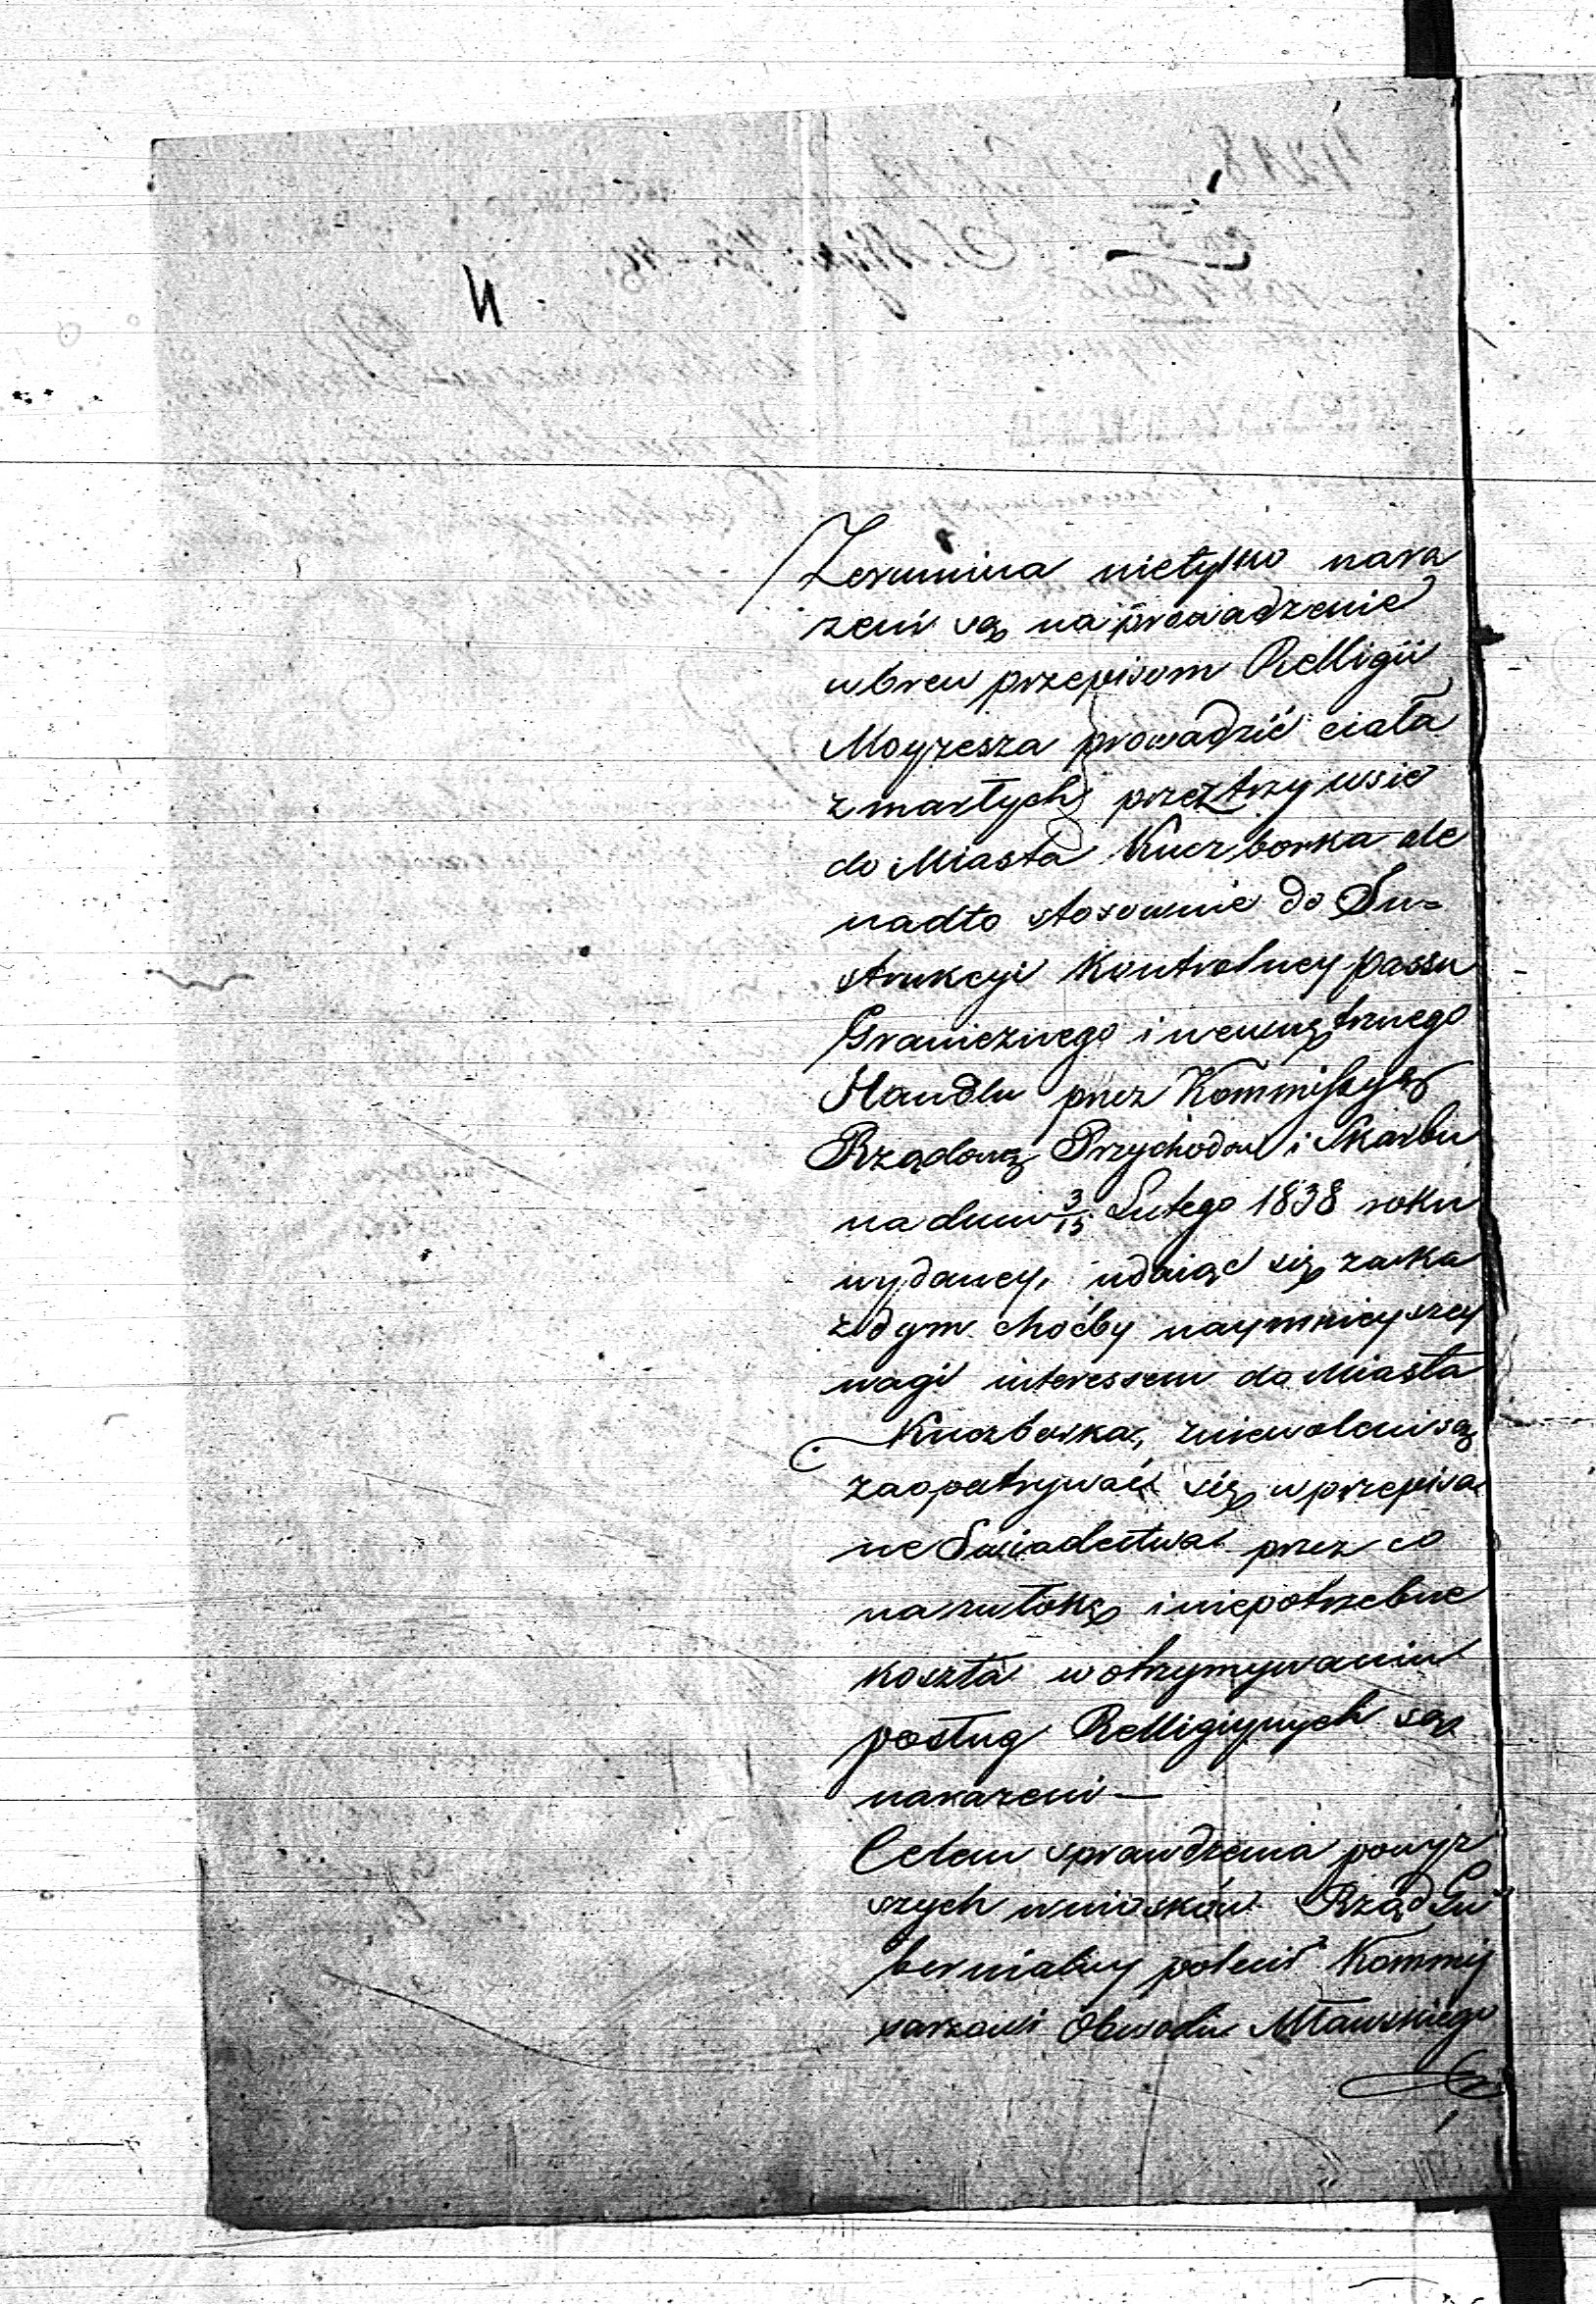 Zerumina nietylko nara
żeni są na prowadzenie
wbrew przepisom Relligii
Moyżesza prowadzić ciała
zmarłych przez trzy wsie
do Miasta Kuczborka ale
nadto stosownie do In=
strukcyi Kontrolney passu
Granicznego i wewnętrznego
Handlu przez Kommissyę
Rządową Przychodow i Skarbu
na dniu 3/15 Lutego 1838 roku
wydaney, udaiąc się za ka
żdym choćby naymnieyszey
wagi interessem do Miasta
Kuczborka, zniewoleni są
zaopatrywać się w przepisa
ne Swiadectwa przez co
na zwłokę i niepotrzebne
koszta w otrzymywaniu
posług Relligiynych są
narażeni —
Celem sprawdzenia powyż
szych wniosków Rząd Gu
bernialny polecił Kommis
sarzowi Obwodu Mławskiego